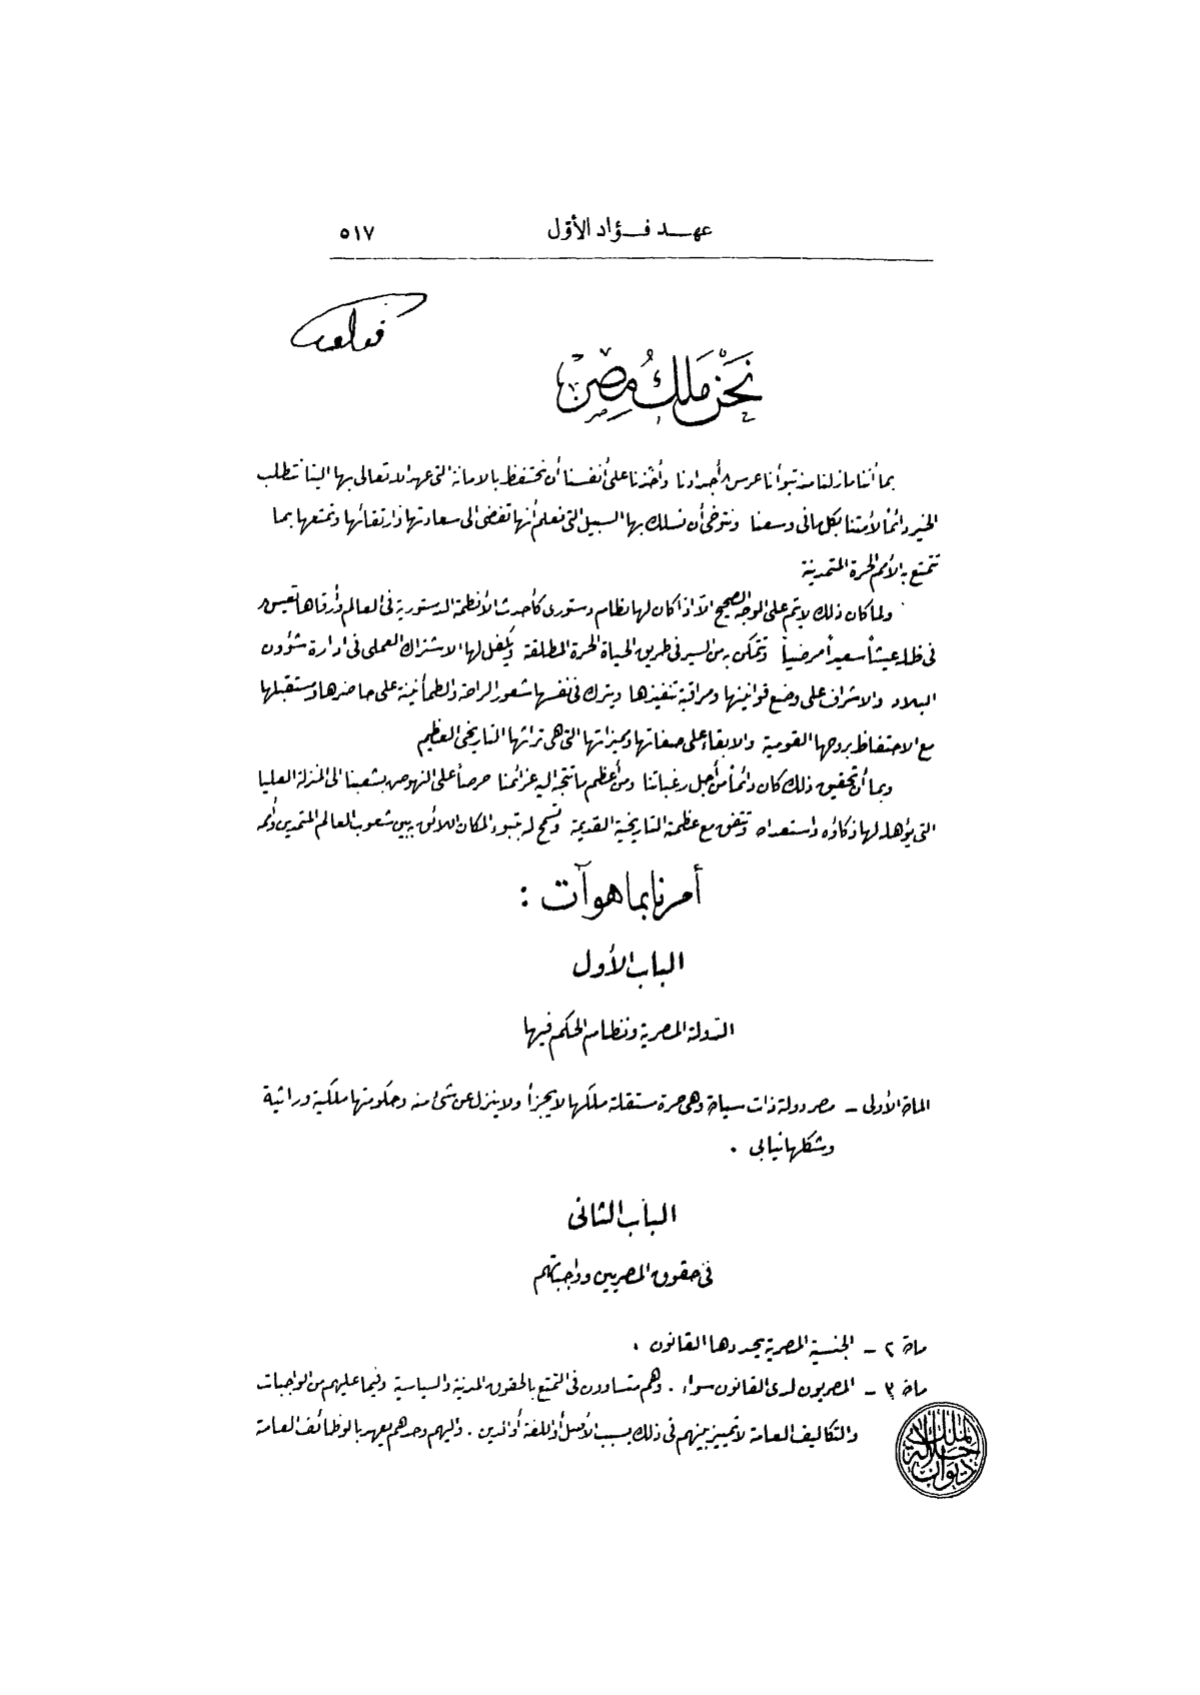 عهد فؤاد الأول ٥١٧
فؤاد
نحن ملك مصر
بما أننا مازلنا منذ تبوأنا عرش أجدادنا وأخذنا على أنفسنا أن نحتفظ بالامانة التى عهد الله تعالى بها الينا نتطلب
الخير دائماً لأمتنا بكل مافى وسعنا ونتوخى أن نسلك بها السبيل التى نعلم أنها تفضى الى سعادتها وارتقائها وتمتعها بما
تتمتع به الأمم الحرة المتمدينة
ولما كان ذلك لا يتم على الوجه الصحيح الا اذا كان لها نظام دستورى كأحدث الأنظمة الدستورية فى العالم وأرقاها تعيش
فى ظله عيشاً سعيداً مرضياً وتتمكن به من السير فى طريق الحياة الحرة المطلقة ويكفل لها الاشتراك العملى فى ادارة شؤون
البلاد والاشراف على وضع قوانينها ومراقبة تنفيذها ويترك فى نفسها شعور الراحة والطمأنينة على حاضرها ومستقبلها
مع الاحتفاظ بروحها القومية والابقاء على صفاتها ومميزاتها التى هى تراثها التاريخى العظيم
وبما أن تحقيق ذلك كان دائماً من أجل رغباتنا ومن أعظم ما تتجه اليه عزائمنا حرصاً على النهوض بشعبنا الى المنزلة العليا
التى يؤهله لها ذكاؤه واستعداده وتتفق مع عظمته التاريخية القديمة وتسمح له بتبوء المكان اللائق به بين شعوب العالم المتمدين وأممه
أمرنا بما هو آت :
الباب الأول
الدولة المصرية ونظام الحكم فيها
المادة الأولى – مصر دولة ذات سيادة وهى حرة مستقلة ملكها لا يجزأ ولا ينزل عن شىء منه وحكومتها ملكية وراثية
وشكلها نيابى .
الباب الثانى
فى حقوق المصريين وواجباتهم
مادة ٢ – الجنسية المصرية يحددها القانون .
مادة ٣ – المصريون لدى القانون سواء . وهم متساوون فى التمتع بالحقوق المدنية والسياسية وفيما عليهم من الواجبات
والتكاليف العامة لا تمييز بينهم فى ذلك بسبب الأصل أو اللغة أو الدين . واليهم وحدهم يعهد بالوظائف العامة
ديوان جلالة الملك